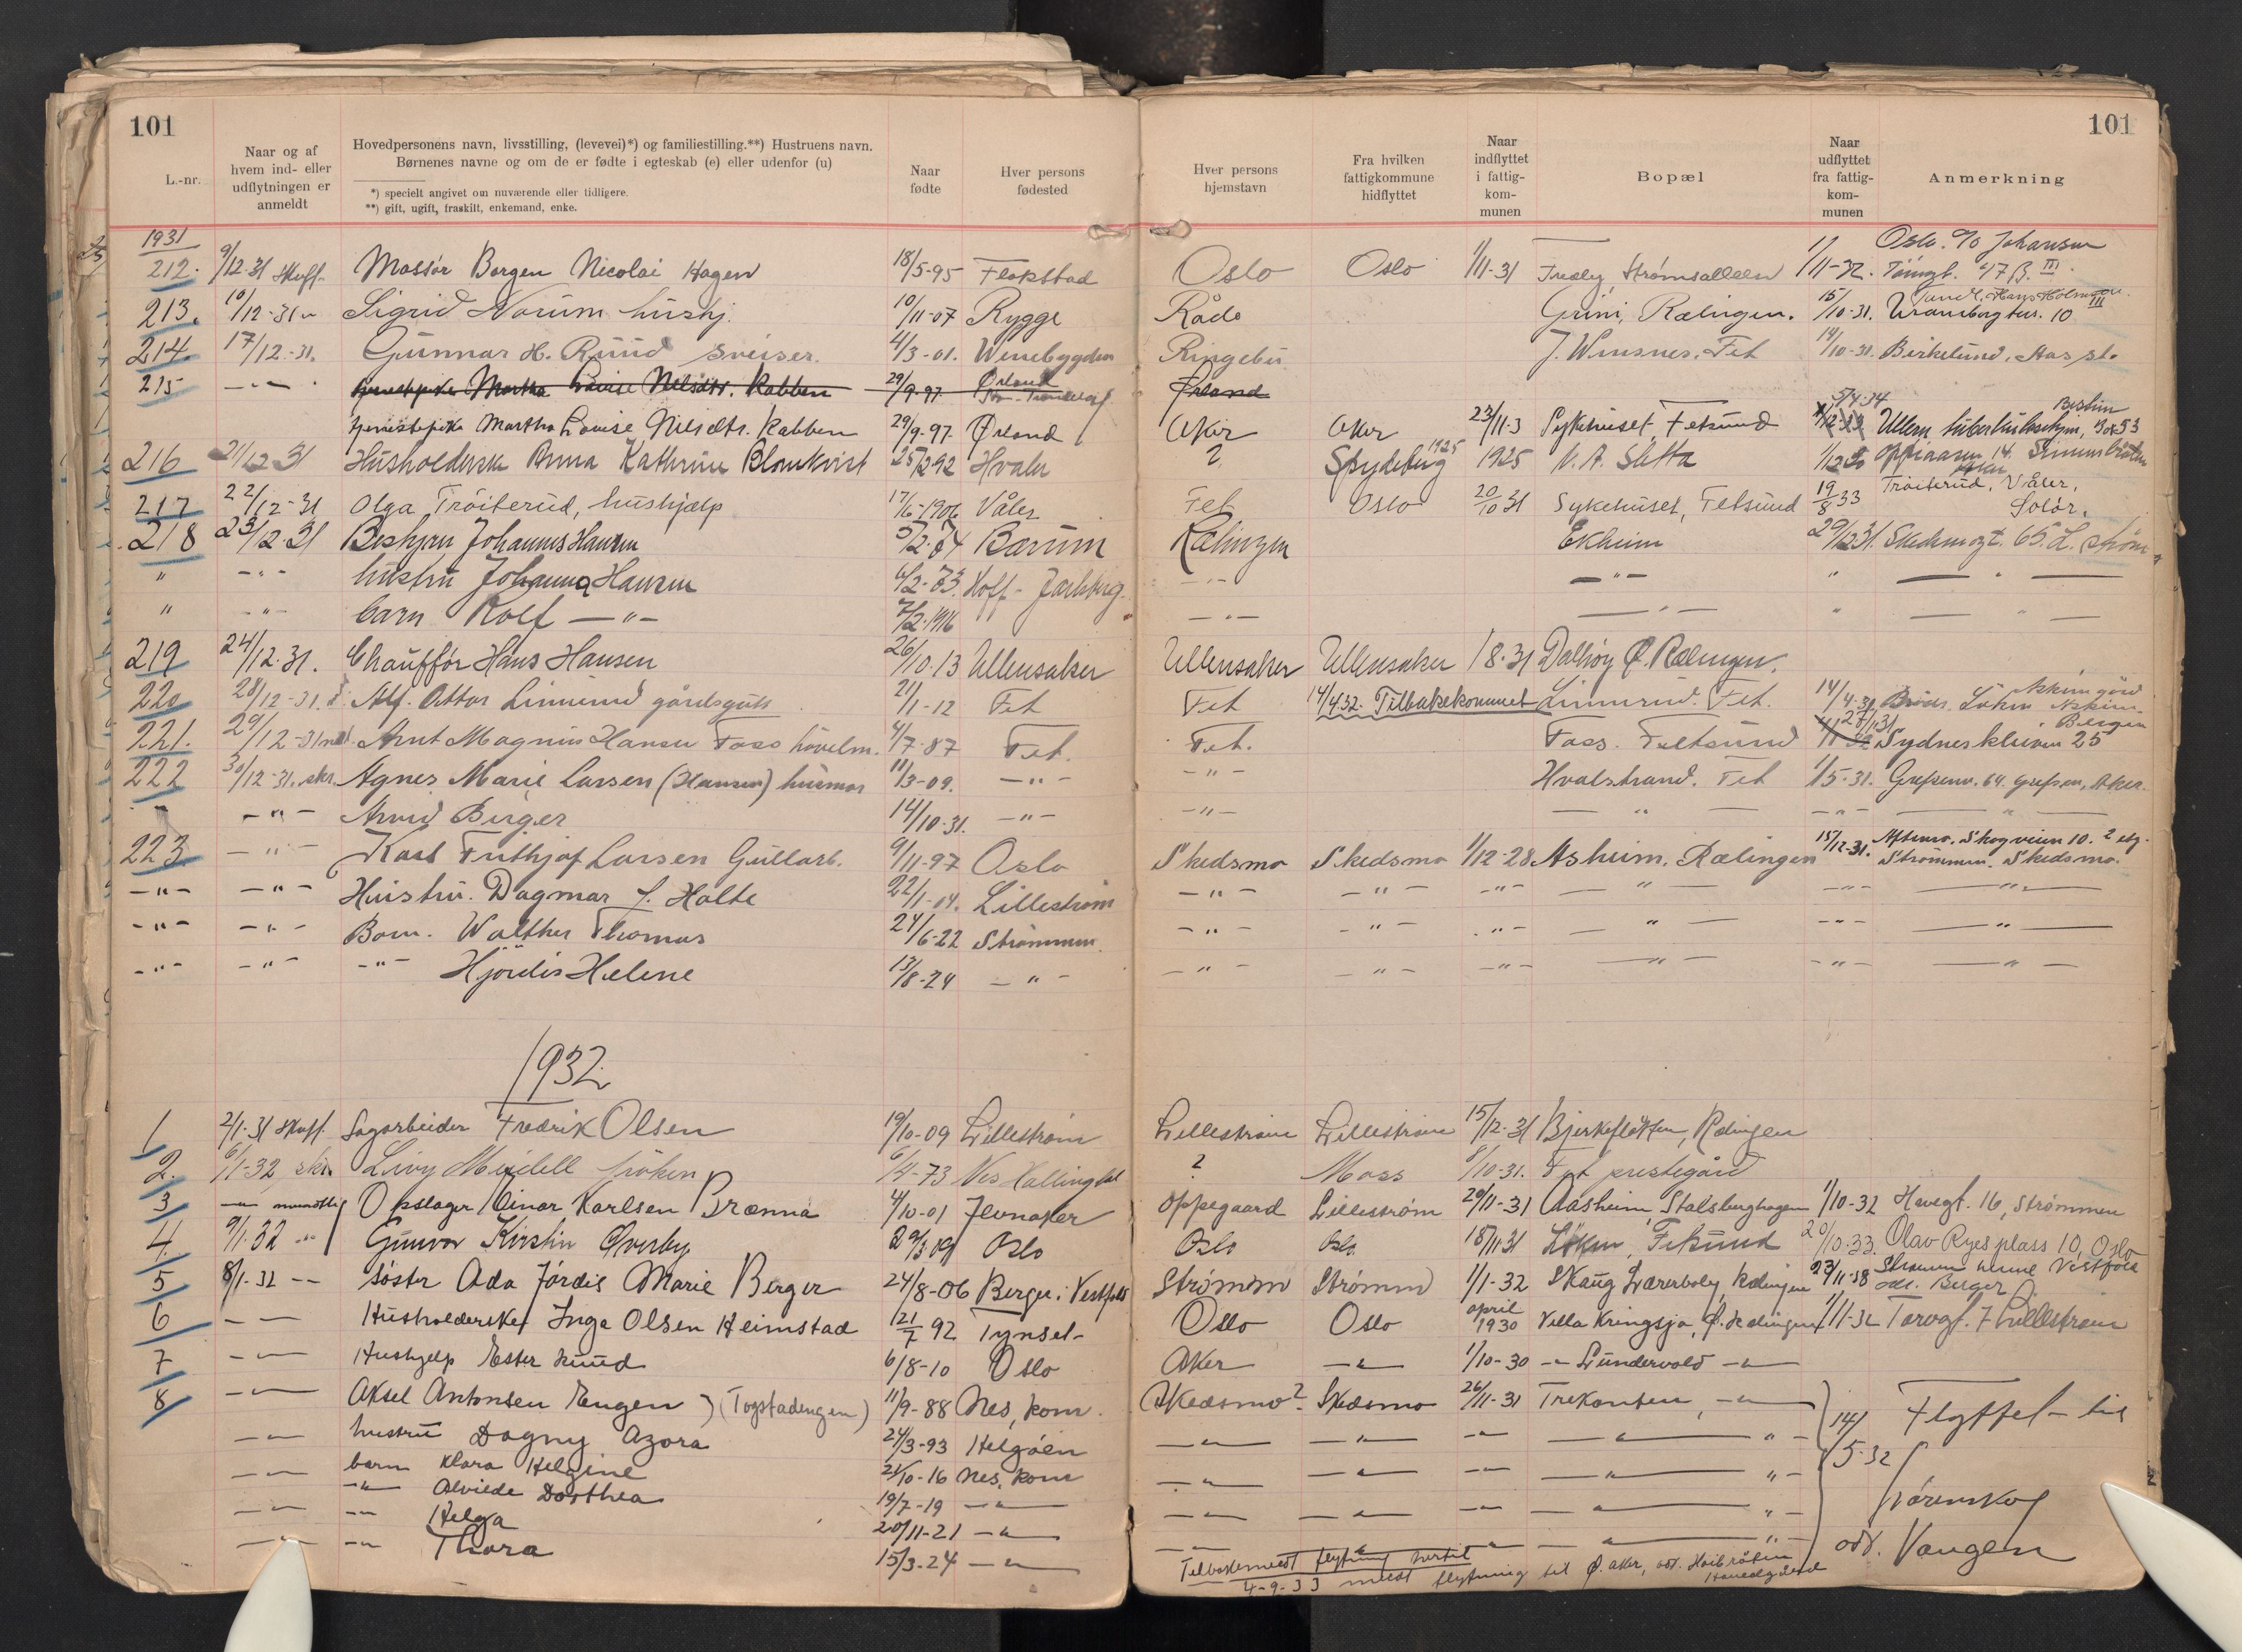 101
L.-nr.
Naar og af hvem ind- eller udflytningen er anmeldt
Hovedpersonens navn, livsstilling, (levevei)*) og familiestilling.**) Hustruens navn.
Børnenes navne og om de er fødte i egteskab (e) eller udenfor (u)
*) specielt angivet om nuværende eller tidligere.
**) gift, ugift, fraskilt, enkemand, enke.
Naar fødte
Hver persons fødested
Hver persons hjemstavn
Fra hvilken fattigkommune hidflyttet
Naar indflyttet i fattig-kom-munen
Bopæl
Naar udflyttet fra fattig-kom-munen
Anmerkning
101
1931
Oslo. c/o Johansen
212. 9/12-31 skuff. Massör Borgen Nicolai Hagen 18/5-95 Flakstad Oslo Oslo 1/11-31 Strømsalleen 1/11-32
213. 10/12-31 Sigrid Norum hushj. 10/11-07 Rygge Råde Grini, Rælingen. 15/10-31. Uranienborgter. 10 III
214. 17/12-31. Gunnar H. Ruud sveiser. 4/3-01. Venebygden Ringebu J. Winsnes, Fet 14/10-31. Birkelund, Aas st.
215 -"- tjenestepike Martha Lovise Nilsdtr. Rabben 29/9-97 Ørland Ørland
tjenestepike Martha Lovise Nilsdtr. Rabben 29/9-97. Ørland Aker Aker 23/11-3 Sykehuset, Fetsund 5/4-34 Ullern
216 21/12 31 Husholderske Anna Kathrine Blomkvist 25/2 92 Hvaler ? Spydeberg 1925 1925 N. A. Sletta 1/12 30
217 22/12-31 Olga Tröiterud, hushjælp 17/6-1906 Våler Fet Oslo 20/10 31 Sykehuset, Fetsund 19/8 33 Tröiterud, Våler, Solör.
218 23/12-31 Johannes Hansen 5/2-74 Bærum Rælingen Ekheim 29/12 31. Skedsmogt. 65. L. strøm
" -"- hustru Johanna Hansen 6/2-73. Hoff - Jarlsberg. -"- -"- " -"-
" -"- barn Rolf -"- 7/2-1916 " -"- -"- " -"-
219 24/12-31. Chauffør Hans Hansen 26/10-13 Ullensaker Ullensaker Ullensaker 1/8-31 Dalhøy Ø. Rælingen.
220 28/12-31. Alf. Ottar Linnerud gårdsgutt 21/1-12 Fet Fet 14/4 32. Tilbakekommet Linnerud. Fet. 14/4-31
221. 29/12-31 Arnt Magnus Hansen Foss hövelm. 4/7-87 Fet. Fet. Foss. Fetsund 27/11 31 Sydneskleiven 25 Bergen
222 30/12-31. skr. Agnes Marie Larsen (Hansen) husmor 11/3-09. -"- -"- Hvalstrand. Fet 1/5-31. Grefsenv. 64. Grefsen, Aker.
-"- Arvid Birger 14/10-31. -"- -"- -"- -"- -"-
223 -"- Karl Frithjof Larsen Gullarb. 9/11-97 Oslo Skedsmo Skedsmo 1/12-28 Asheim, Rælingen 15/12-31. Skogveien 10. 2 etg. Strømmen. Skedsmo.
-"- -"- Hustru. Dagmar f. Holte 22/1-04. Lilleström -"- -"- -"- -"- -"- -"-
-"- -"- Barn. Walther Thomas 24/6-22 Strømmen. -"- -"- -"- -"- -"- -"-
-"- -"- -"- Hjördis Helene 13/8-24 -"- -"- -"- -"- -"- -"- -"-
1932.
1 2/1-31 skuff. Sagarbeider Fredrik Olsen 19/10-09 Lillestrøm Lillestrøm Lillestrøm 15/12-31 Bjerkesletten, Rælingen
2. 6/1-32 skr. Livy Meidell fröken 6/4-73 Nes Hallingdal ? Moss 8/10-31. Fet prestegård
3 -"- muntlig Opslager Einar Karlsen Brænna 4/10-01 Jevnaker Oppegaard Lillestrøm 29/11-31 Aasheim, Stalsberghagen 1/10-32 Havegt. 16, Strømmen
4. 9/1-32 -"- Gunvor Kirstin Överby 29/3 09 Oslo Oslo Oslo 18/11 31 Löken, Fetsund 20/10-33. Olav Ryes plass 10, Oslo
5 8/1-32 -- söster Ada Jördis Marie Berger 24/8-06 Berger i Vestfold Strømm Strømm 1/1-32 Skaug Lærerbolig Rælingen 23/11-38 Vestfold adr. Berger
6 -- Husholderske Inga Olsen Heimstad 121/7 92 Tynset- Oslo Oslo april 1930 Villa Kringsjø, Ø. Rælingen 1/11-32 Torvgt. 7 Lillestrøm
7 -- Hushjelp Ester Ruud 6/8-10 Oslo Aker -"- 1/10-30 -"- Lundervold -"-
8 -- Aksel Antonsen Engen (Togstadengen) 11/9-88 Nes, kom. Skedsmo? Skedsmo 26/11-31 Trekanten, -"- 14/5-32 Flyttet til
-- hustru Dagny Azora 24/3-93 Helgöen -"- -"- -"- -"- "-
-- barn Klara Helgine 21/10-16 Nes, kom -"- -"- -"- -"- "-
-"- Alvilde Dorthea 19/7-19 -"- -"- -"- -"- -"- "- Lörenskog
-- -"- Helga 20/11-21 -"- -"- -"- -"- -"- "-
-- -"- Thora 15/3-24 -"- adr. Vangen
Tilbakemeldt flytning hertil
4-9-33 meldt flytning til Ø. Aker, adr. Höibråten